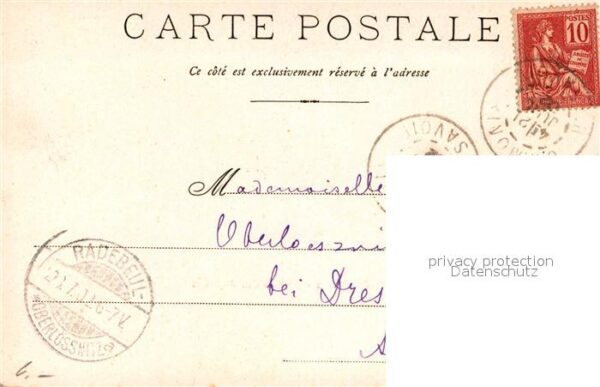 CARTE POSTALE
Ce côté est exclusivement réservé à l'adresse
POSTES
10
SAVOIE
Mademoiselle
Oberloeszni
bei Dres
RADEBEUL-
OBERLÖSSNITZ
privacy protection
Datenschutz
6.-